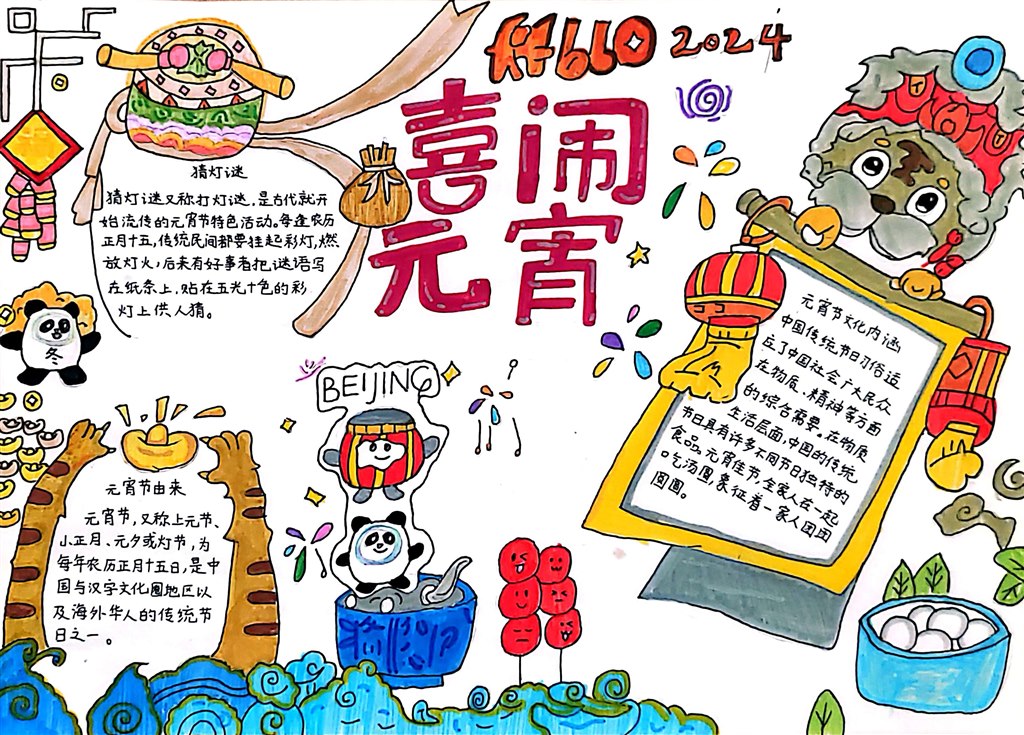 2024
喜闹
元宵
猜灯谜
猜灯谜又称打灯谜,是古代就开
始流传的元宵节特色活动。每逢农历
正月十五,传统民间都要挂起彩灯,燃
放灯火,后来有好事者把谜语写
在纸条上,贴在五光十色的彩
灯上供人猜。
冬
BEIJING
元宵节由来
元宵节,又称上元节、
小正月、元夕或灯节,为
每年农历正月十五日,是中
国与汉字文化圈地区以
及海外华人的传统节
日之一。
元宵节文化内涵
中国传统节日习俗适
应了中国社会广大民众
在物质、精神等方面
的综合需要。在物质
生活层面,中国的传统
节日具有许多不同节日独特的
食品。元宵佳节,全家人在一起
吃汤圆,象征着一家人团团
圆圆。